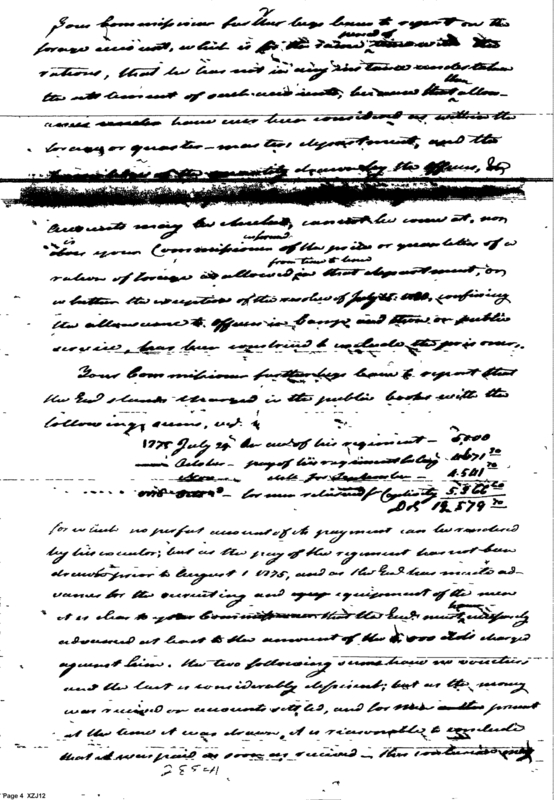 Your Commissioner further begs leave to report on the
forage account, which is for the same period of time with the
rations, that he has not in any instance undertaken
the settlement of such accounts, because that allow-
ances have ever been considered as within the
forage or quarter-masters department, and the
of the quantity drawn by the officers,
accounts may be checked, cannot be come at, nor
is your Commissioner informed of the price or quantities of a
ration of forage as allowed from time to time in that department, or
whether the exception of the resolve of July confining
the allowance to officers in Camp and then on public
service, has been construed to include the prisoners.
Your Commissioner further begs leave to report that
the stands charged in the public books with the
following sums, viz.
1775 July 29 for use of his regiment - 5000
October - pay of his regiment to
ditto for September - 4.541 70
for men relieved for Captivity 5.366 60
Dol 19,579 70
for which no perfect account of its payment can be rendered
by his executor; but as the pay of the regiment had not been
drawn prior to August 1 1775, and as the had made ad-
vances for the recruiting and equipment of the men
it is clear to your Commissioner that the must have
advanced at least to the amount of the 5,000 dols charged
against him. The two following sums have no vouchers
and the last is considerably deficient; but as the money
was received on accounts settled, and for present
at the time it was drawn, it is reasonable to conclude
that it was paid as soon as received - this
Page 4 XZJ12